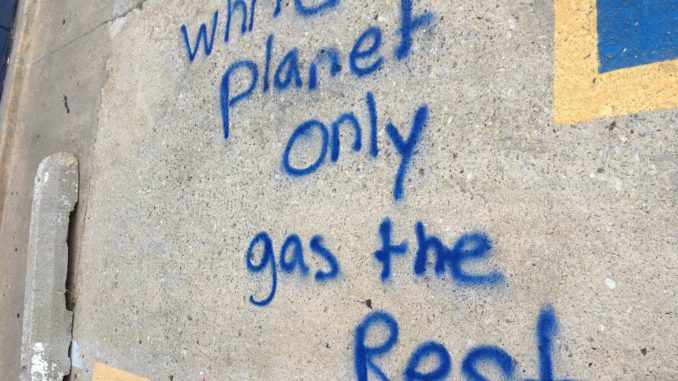 white
planet
Only
gas the
Rest